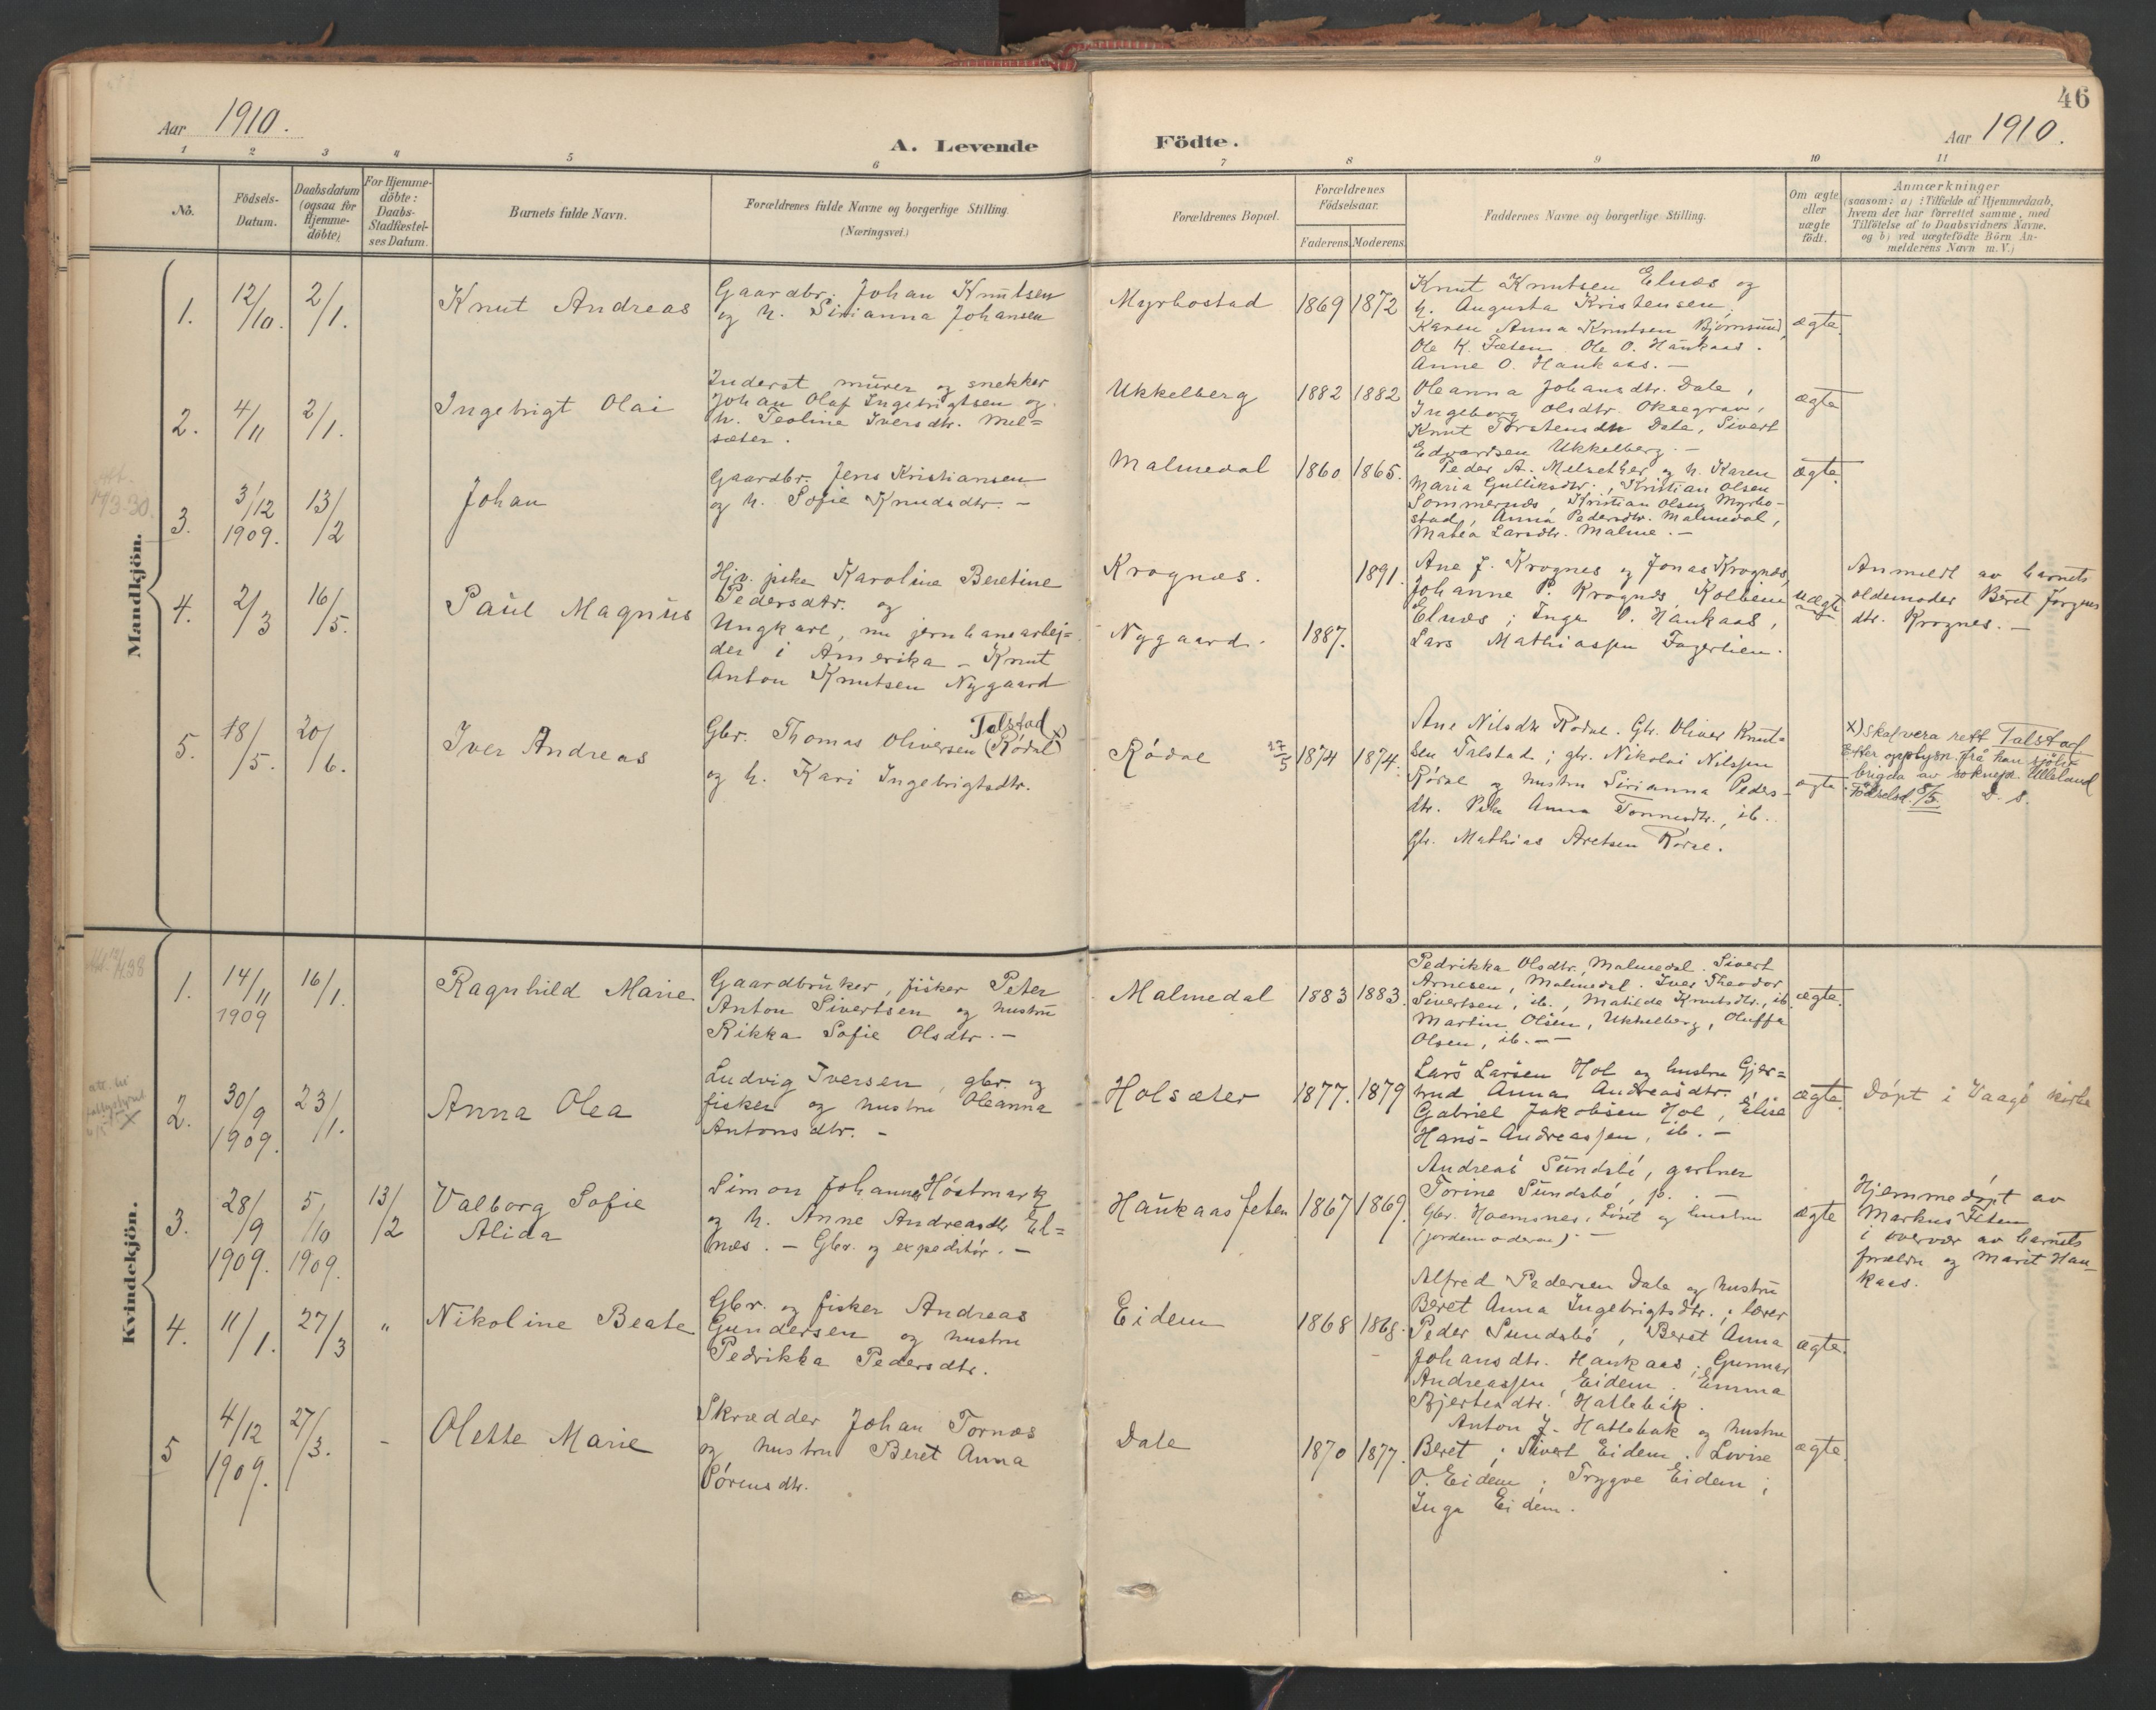 46
Aar 1910.
A. Levende Födte.
Aar 1910.
1 2 3 4 5 6 7 8 9 10 11
No.
Födsels-
Datum.
Daabsdatum
(ogsaa for
Hjemme-
döbte)
For Hjemme-
döbte:
Daabs-
Stadfæstel-
ses Datum.
Barnets fulde Navn.
Forældrenes fulde Navne og borgerlige Stilling.
(Næringsvei.)
Forældrenes Bopæl.
Forældrenes
Födselsaar.
Faderens. Moderens.
Faddernes Navne og borgerlige Stilling.
Om ægte
eller
uægte
födt.
Anmærkninger
(saasom: a) : Tilfælde af Hjemmedaab,
hvem der har forrettet samme, med
Tilföielse af to Daabsvidners Navne.
og b) ved uægtefödte Börn An-
melderens Navn m. V.)
Mandkjön.
1. 12/10. 2/1.
Knut Andreas
Gaardbr. Johan Knutsen
og h. Sirianna Johansen
Myrbostad 1869 1872
Knut Knutsen Elnæs og
h. Augusta Kristensen,
Karen Anna Knutsen Bjørnsund,
Ole K. Fæten Ole O. Haukaas.
Anne O. Haukaas. —
ægte.
2. 4/11 2/1.
Ingebrigt Olai
Inderst murer og snekker
Johan Olaf Ingebrigtsen og
h. Teoline Iversdtr. Mel=
sæter.
Ukkelberg 1882 1882
Oleanna Johansdtr. Dale,
Ingeborg Olsdtr. Oksegrav,
Knut Torstensdn Dale, Sivert
Edvartsen Ukkelberg. —
ægte
3. 3/12 1909. 13/2
Johan
Gaardbr. Jens Kristiansen
og h. Sofie Knudsdtr. —
Malmedal 1860 1865.
Peder A. Melsether og h. Karen
Maria Gulliksdtr., Kristian Olsen
Sommernes, Kristian Olsen Myrbo-
stad, Anna Pedersdtr. Malmedal,
Matea Larsdtr. Malme. —
ægte.
4. 2/3 16/5.
Paul Magnus
Hjv. pike Karoline Beretine
Pedersdtr. og
Ungkarl, nu jernbanearbej=
der i Amerika — Knut
Anton Knutsen Nygaard
Krognæs. 1891.
Nygaard. 1887.
Ane J. Krognes og Jonas Krognæs,
Johanne P. Krognes Kolbein
Elnæs; Inga O. Haukaas,
Lars Mathiassen Fagerlien.
uægte
Anmeldt av barnets
oldemoder Beret Jørgens
dtr. Krognes. —
5. 18/5. 20/6.
Iver Andreas
Gbr. Thomas Oliversen Talstad (Rödal) x)
og h. Kari Ingebrigtsdtr.
Rödal 27/5 1874 1874.
Ane Nilsdtr Rödal. Gbr. Oliver Knut-
sen Talstad; gbr. Nikolai Nilssen
Rödal og hustru Sirianna Peders-
dtr. Pike Anna Tønnesdtr., ib.
Gbr. Mathias Aretsen Rödal.
ægte
x) Skal vera rett Talstad
Etter opplysn. frå han sjölv
brigda av sokneprs. Ulleland
Födselsd. 8/5. D. S.
Kvindekjön.
1. 14/11 1909 16/1.
Ragnhild Marie
Gaardbruker, fisker Peter
Anton Sivertsen og hustru
Rikka Sofie Olsdtr. —
Malmedal 1883 1883.
Pedrikka Olsdtr, Malmedal. Sivert
Arnesen, Malmedal. Iver Theodor
Sivertsen, ib., Matilda Knutsdtr., ib.
Martin Olsen, Ukkelberg, Oluffa
Olsen, ib. —
ægte.
2. 30/9 1909. 23/1.
Anna Olea
Ludvig Iversen, gbr. og
fisker og hustru Oleanna
Antonsdtr. —
Holsæter 1877. 1879
Lars Larsen Hol og hustru Gjer=
trud Anna Andreasdtr.
Gabriel Jakobsen Hol, Elise
Hans-Andreassen, ib. —
ægte.
Döpt i Vaagö kirke
3. 28/9 1909. 5/10 1909. 13/2
Valborg Sofie
Alida
Simon Johannes Höstmark
og h. Anne Andreasdtr El=
næs. — Gbr. og expeditör. —
Haukaasfeten 1867 1869.
Andreas Sundsbö, gartner
Torine Sundsbö, p. —
Gbr. Hoemsnes, Löset og hustru
(jordemoderen). —
ægte
Hjemmedöpt av
Markus Feten
i overvær av barnets
forældre og Marit Hau-
kaas.
4. 11/1. 27/3 "
Nikoline Beate
Gbr. og fisker Andreas
Gundersen og hustru
Pedrikka Pedersdtr.
Eidem 1868 1868.
Alfred Pedersen Dale og hustru
Beret Anna Ingebrigtsdtr.; lærer
Peder Sundsbö, Beret Anna
Johansdtr. Haukaas; Gunnar
Andreassen, Eidem. Emma
Bjertesdtr. Hatlebak.
ægte.
5 4/12 1909. 27/3. -
Olette Marie
Skrædder Johan Tornæs
og hustru Beret Anna
Sörensdtr.
Dale 1870 1877.
Anton J. Hatlebak og hustru
Beret; Sivert Eidem. Lovise
O. Eidem; Trygve Eidem;
Inga Eidem.
ægte.